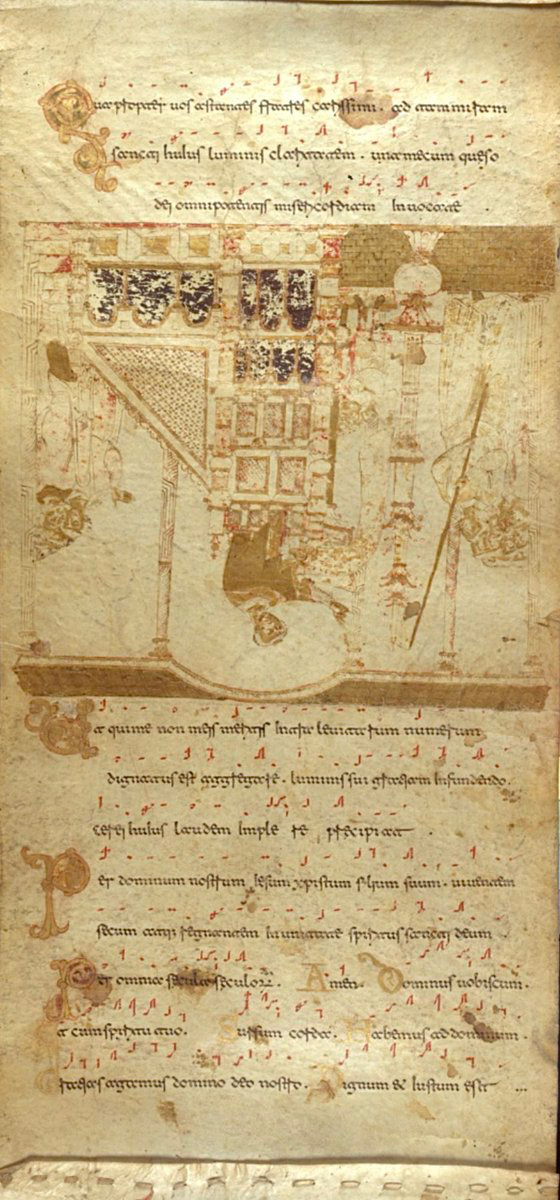 Quapropter vos astantes fratres carissimi. ad tam miram
sancti huius luminis claritatem. una mecum queso
dei omnipotentis misericordiam Invocate .
Ut qui me non meis meritis Intra levitarum numerum
dignatus est aggregare. luminis sui gratiam Infundendo.
cerei huius laudem Implere precipiat .
Per dominum nostrum Iesum xpistum filium suum. viventem
secum atque regnantem In unitate spiritus sancti deum
Per omnia secula seculorum. Amen. Dominus vobiscum.
Et cum spiritu tuo. Sursum corda. Habemus ad dominum.
Gratias agamus domino deo nostro. Dignum & Iustum est ...